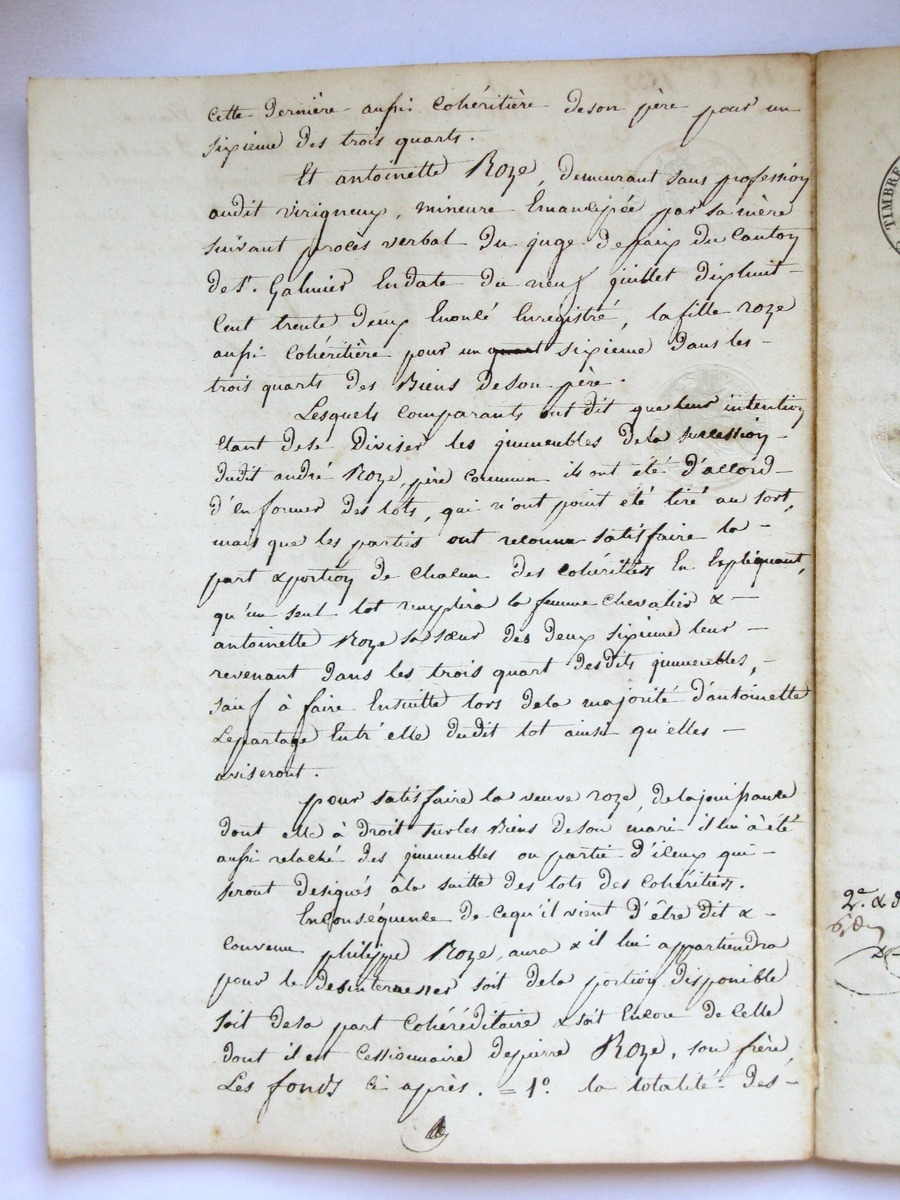 cette dernière aussi cohéritière de son père pour un
sixieme des trois quarts.
Et antoinette Roze, demeurant sans profession
audit virigneux, mineure Emancipée par sa mère
suivant procès verbal du juge de paix du Canton
de St. Galmier En date du neuf juillet dix huit
Cent trente deux Enoncé Enregistré, la fille roze
aussi Cohéritière pour un quart sixieme dans les
trois quarts des Biens de son père.
Lesquels comparants ont dit que leur intention
étant de se Diviser les immeubles de la succession
dudit andré Roze, père commun ils ont été d'accord
d'en former des lots, qui n'ont point été tiré au sort,
mais que les parties ont reconnu satisfaire la
part & portion de chacun des cohéritiers En Expliquant,
qu'un seul lot remplira la femme chevalier &
antoinette Roze sa sœur des deux sixieme leur
revenant dans les trois quart desdits immeubles,
sauf à faire Ensuitte lors de la majorité d'antoinette
Le partage Entr'elle dudit lot ainsi qu'elles
aviseront.
pour satisfaire la veuve roze, de la jouissance
dont elle à droit sur les Biens de son mari il lui à été
aussi relaché des immeubles ou partie d'iceux qui
seront designés à la suitte des lots des cohéritiers.
En conséquence de ce qu'il vient d'être dit &
convenu philippe Roze, aura & il lui appartiendra
pour le desinteresser soit de la portion disponible
soit de sa part Cohéréditaire & soit Encore de Celle
dont il est Cessionnaire de pierre Roze, son frère,
Les fonds ci après. = 1º. la totalité des
TIMBRE
2e. &